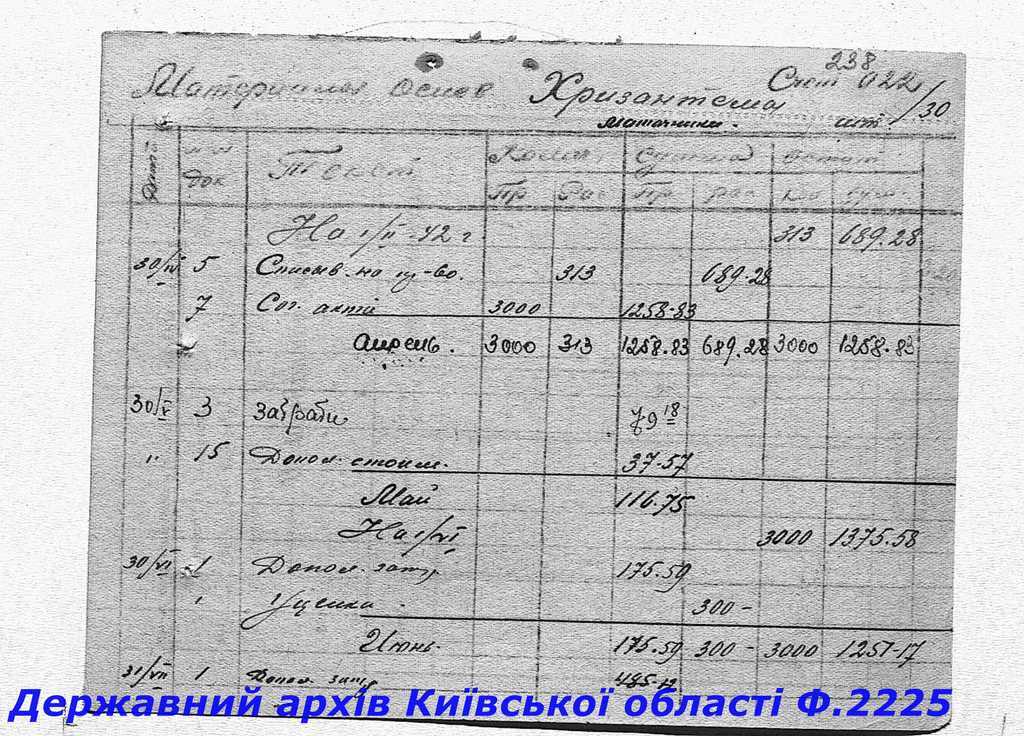 238
Материалы основ Хризантема Счет 022/30
Маточники. шт.
Дата №№ док Текст Колич. Сумма Остат
Пр. Рас Пр. рас Кол сум.
На 1/IV-42 г 313 689.28
30/IV 5 Списыв. на пр-во. 313 689.28
7 Сог. акта 3000 1258.83
апрель. 3000 313 1258.83 689.28 3000 1258.83
30/V 3 Затраты 79 18
" 15 Допол. стоим. 37-57
Май 116.75
На 1/VI 3000 1375.58
30/VI 1 Допол. затр 175.59
" Уценка - 300 -
Июнь 175.59 300 - 3000 1251-17
31/VII 1 Допол. затр
Державний архів Київської області Ф.2225